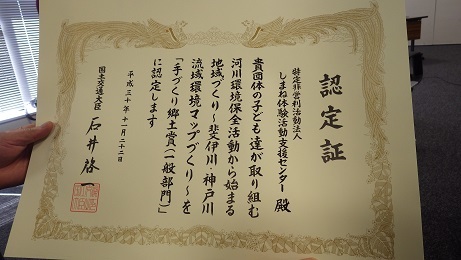 認定証
特定非営利活動法人
しまね体験活動支援センター 殿
貴団体の子ども達が取り組む
河川環境保全活動から始まる
地域づくり～斐伊川・神戸川
流域環境マップづくり～を
「手づくり郷土賞(一般部門)」
に認定します
平成三十年十一月二十二日
国土交通大臣 石井啓一